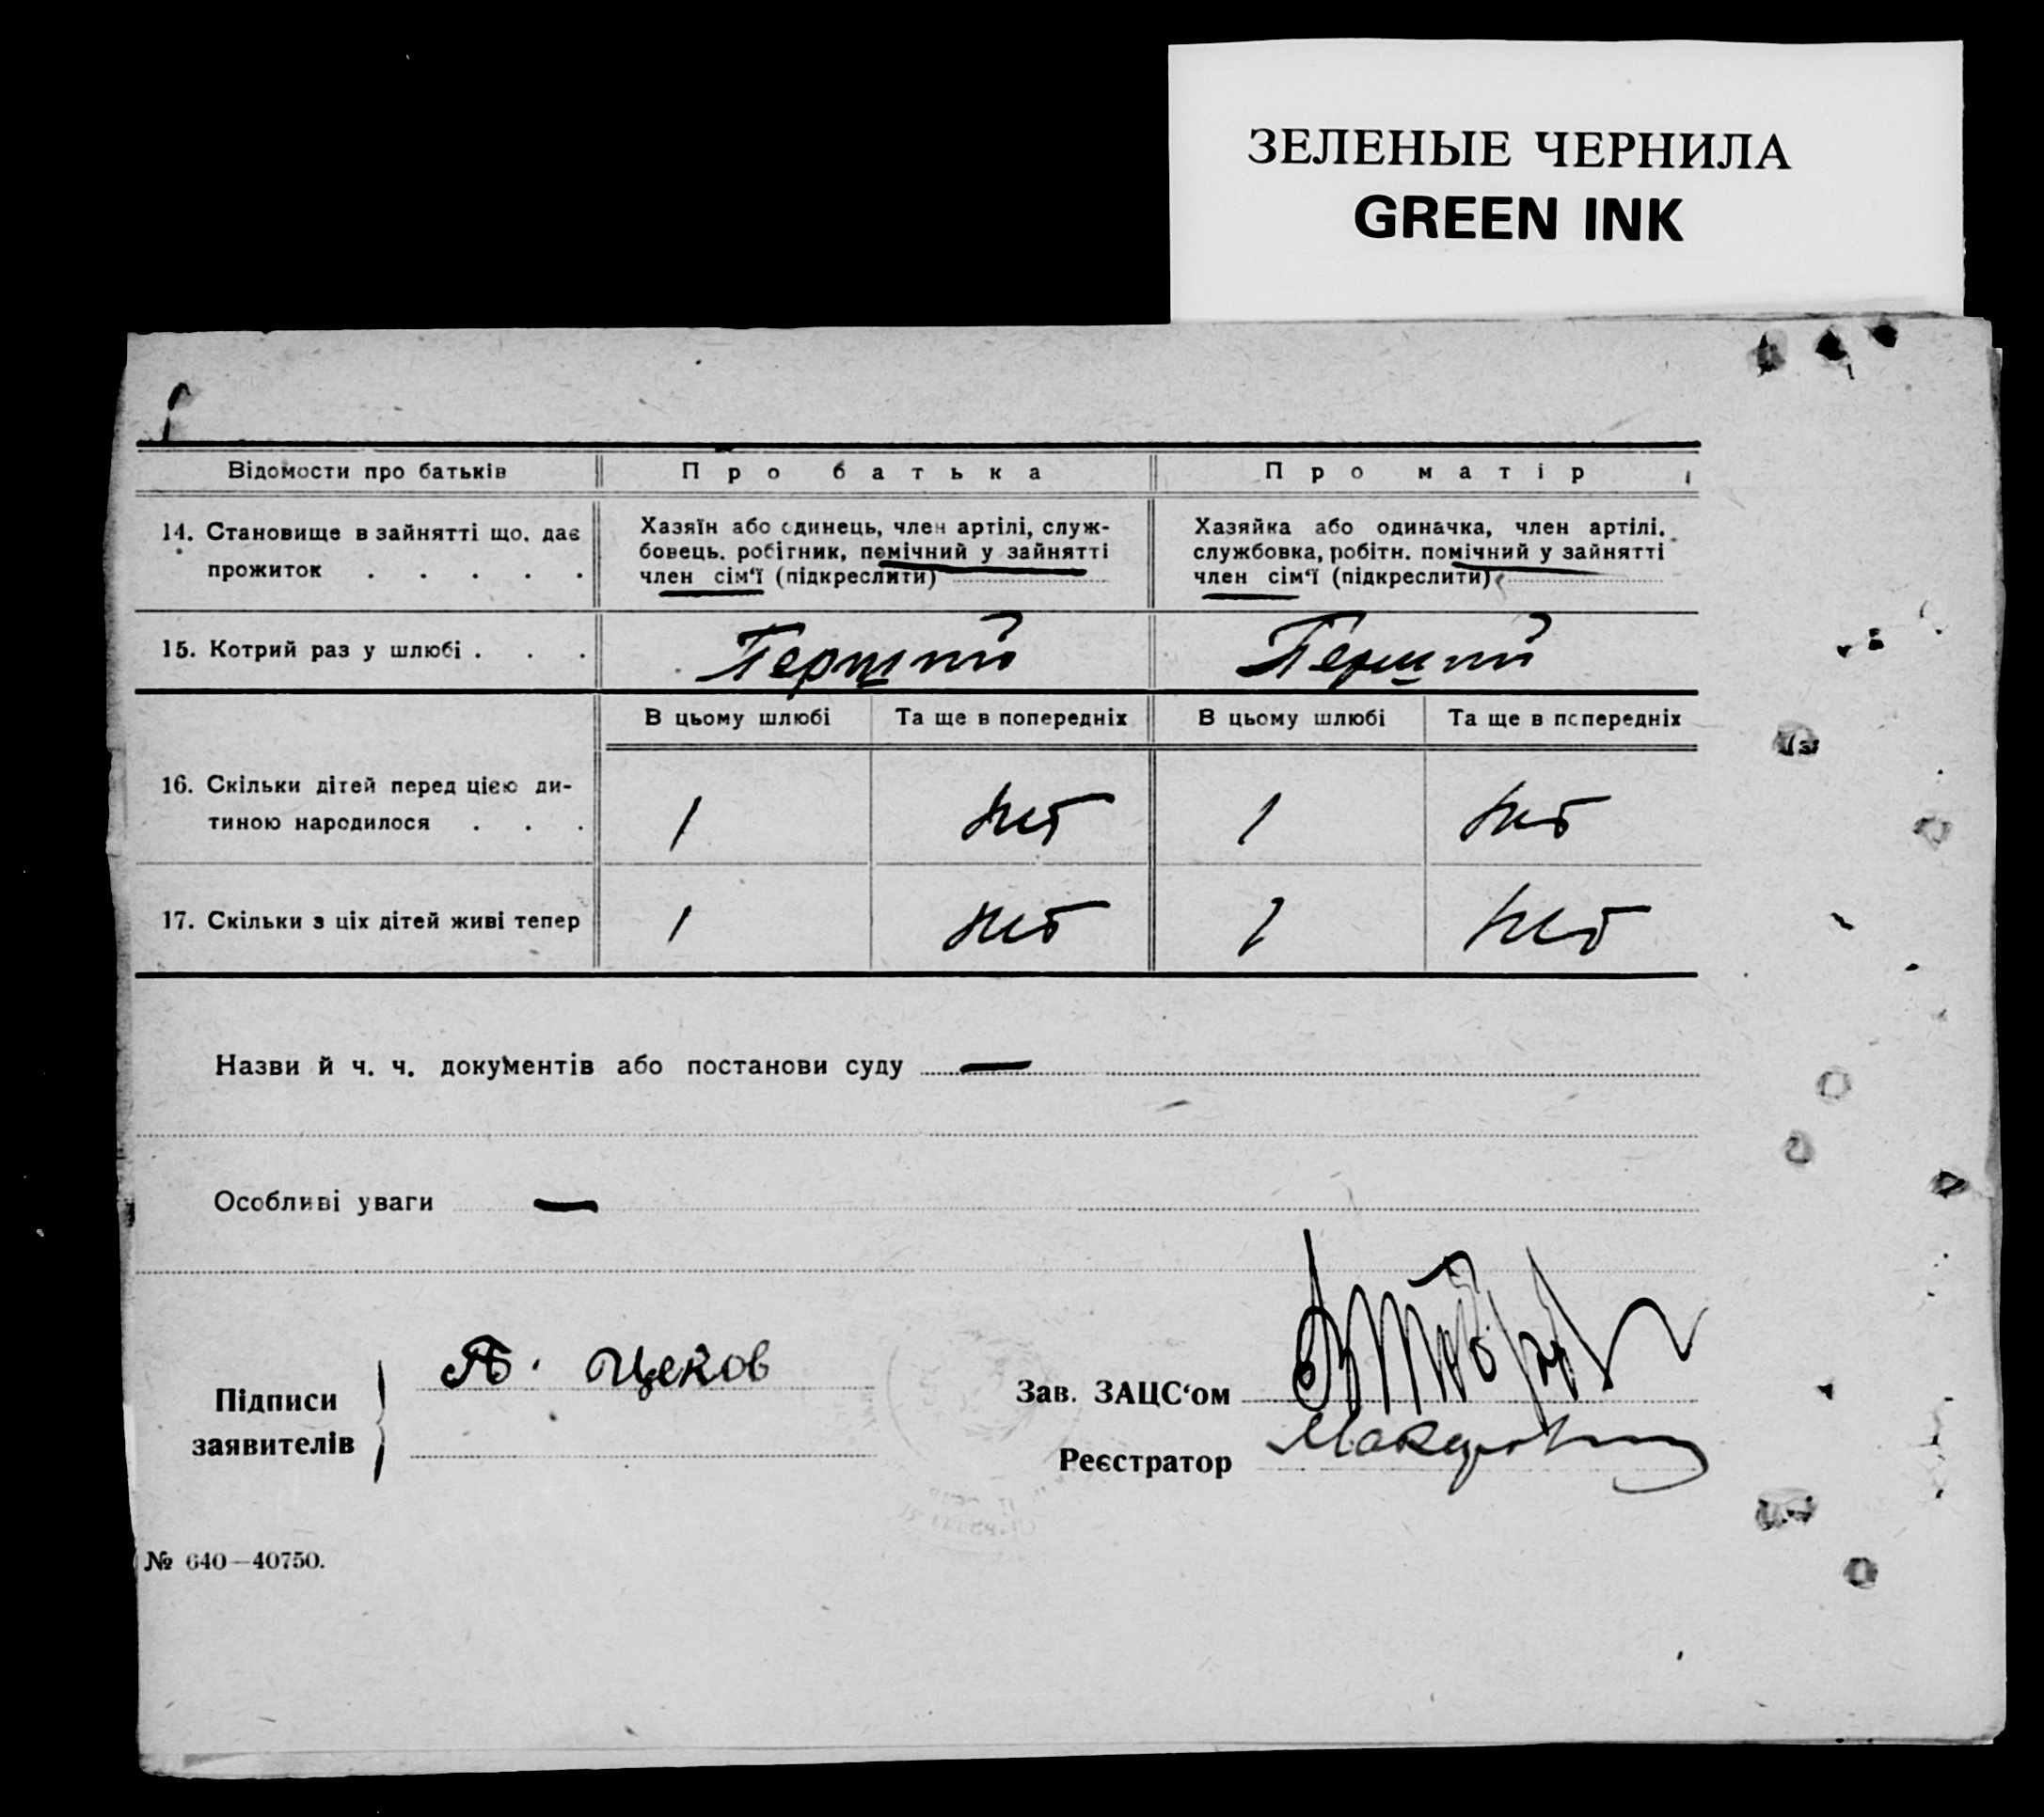 ЗЕЛЕНЫЕ ЧЕРНИЛА
GREEN INK
Відомости про батьків
Про батька
Про матір
14. Становище в зайнятті що, дає
прожиток . . . . .
Хазяїн або одинець, член артілі, служ-
бовець, робітник, помічний у зайнятті
член сім‘ї (підкреслити)
Хазяйка або одиначка, член артілі,
службовка, робітн. помічний у зайнятті
член сім‘ї (підкреслити)
15. Котрий раз у шлюбі . . .
Перший
Перший
В цьому шлюбі
Та ще в попередніх
В цьому шлюбі
Та ще в попередніх
16. Скільки дітей перед цією ди-
тиною народилося . . .
1
нет
1
нет
17. Скільки з ціх дітей живі тепер
1
нет
1
нет
Назви й ч. ч. документів або постанови суду —
Особливі уваги —
Підписи
заявителів
Цеков
Зав. ЗАЦС‘ом
Реєстратор
№ 640—40750.